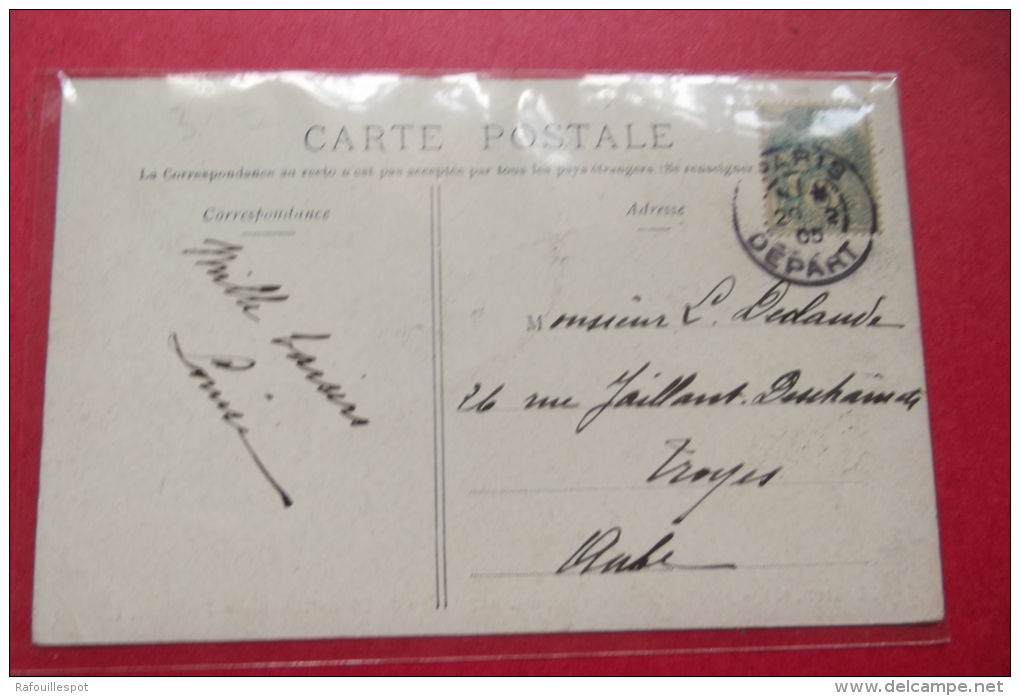 CARTE POSTALE
La Correspondance au recto n'est pas acceptée par tous les pays étrangers (Se renseigner
Correspondance
Adresse
PARIS
DÉPART
Mille baisers
Louise
Monsieur L. Declaude
26 rue Jaillant-Deschainets
Troyes
Aube
Rafouillespot
delcampe.net